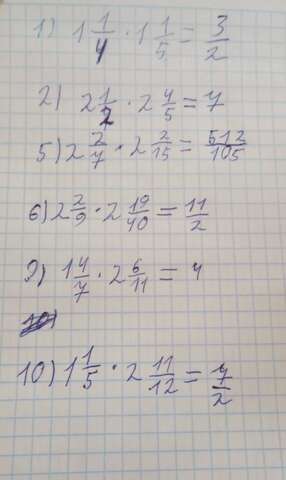 1) 1 1/4 · 1 1/5 = 3/2
2) 2 1/2 · 2 4/5 = 7
5) 2 2/7 · 2 2/15 = 512/105
6) 2 2/9 · 2 19/40 = 11/2
9) 1 4/7 · 2 6/11 = 4
10) 1 1/5 · 2 11/12 = 7/2